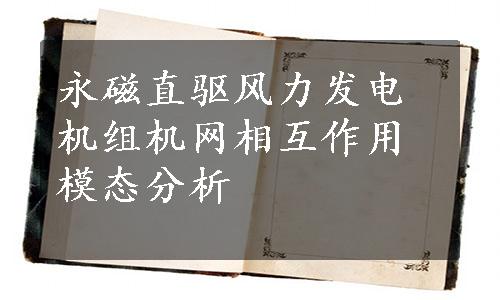 永磁直驱风力发电
机组机网相互作用
模态分析